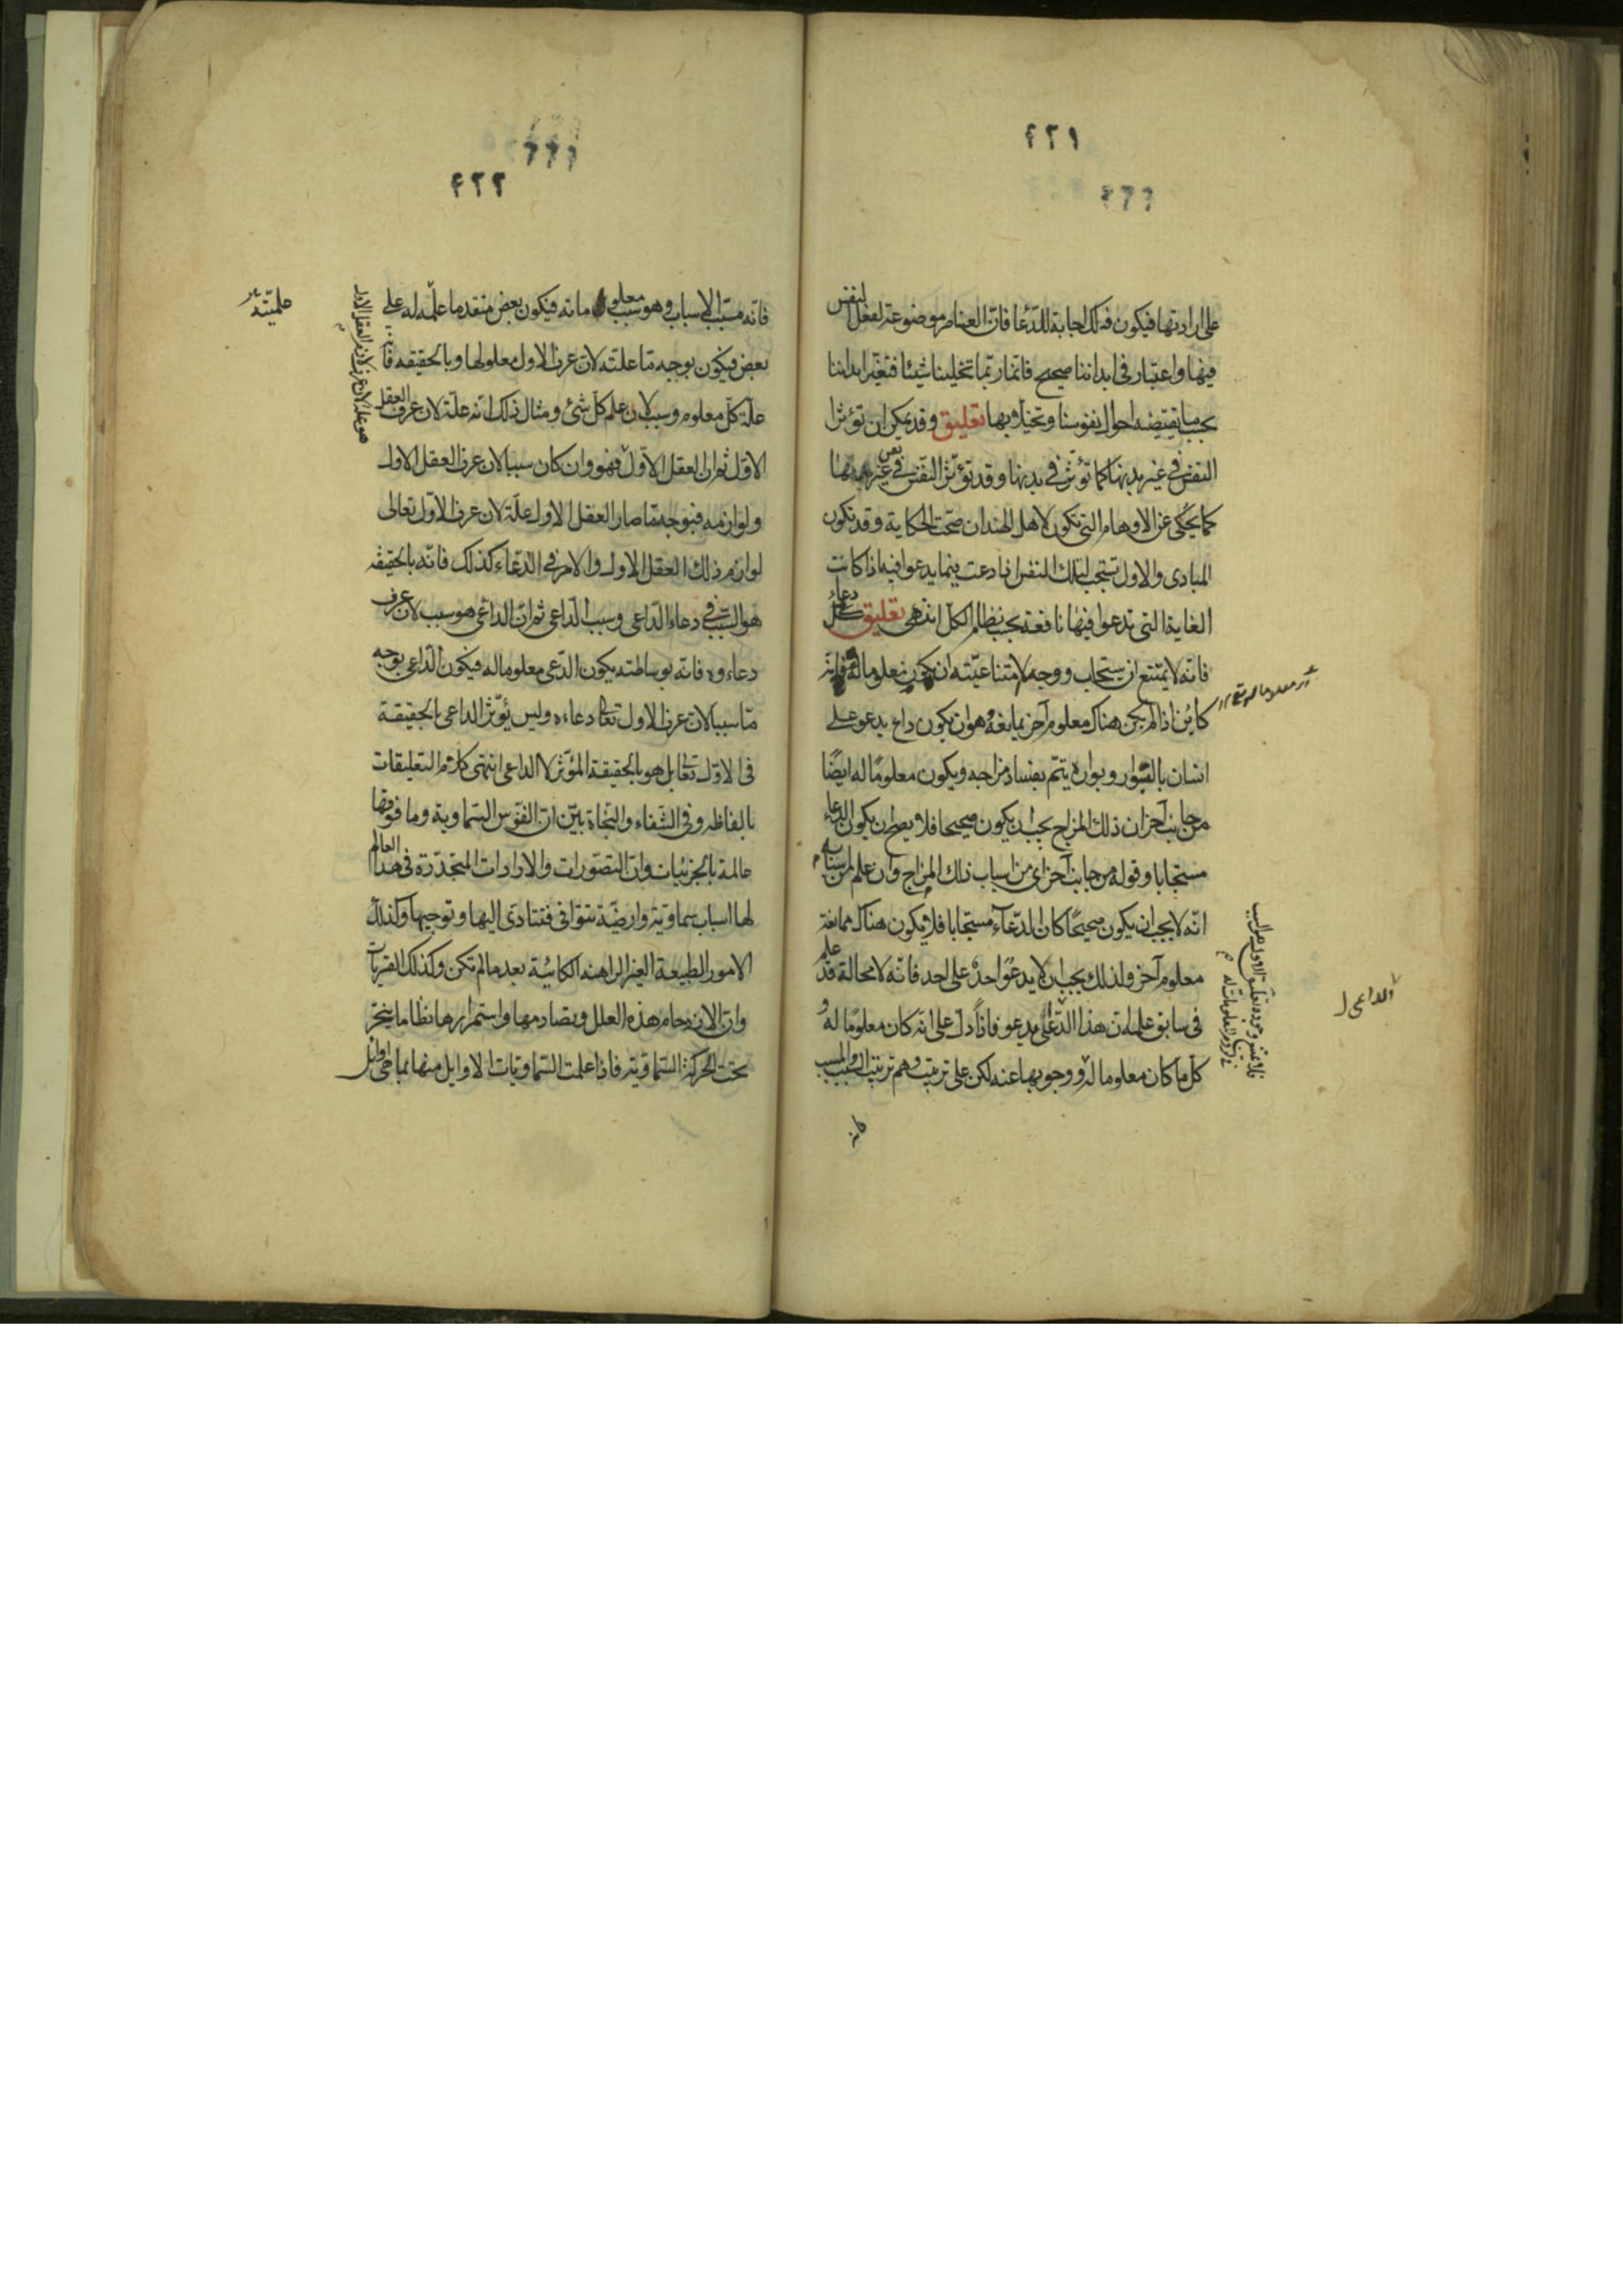 ٤٢١
على ارادتها فيكون ذلك اجابة للدّعا فانّ العناصر موضوعة لفعل النفس
فيها واعتبار فى ابداننا صحيح فانّا ربّما تخلينا شيئا فتغيّر ابداننا
بحسب ما يقتضيه احوال نفوسنا وتخيلاتها تعليق وقد يمكن ان تؤثرا
النفس فى غير بدنها كما تؤثر فى بدنها وقد تؤثّر النّفس فى نفس غيرها
كما يحكى عن الاوهام التى تكون لاهل الهند ان صحّت الحكاية وقد تكون
المبادى والاول تستجب لتلك النفس اذا دعت فيما يدعوا فيه اذا كانت
الغاية التى تدعوا فيها نافعة بحسب نظام الكل انتهى تعليق كلّ دعاء
فانّه لا يمتنع ان يستجاب ووجه لا متناعيّته ان يكون معلوما له فانّه
كاين اذا لم يكن هناك معلوم آخر يمانعه وهو ان يكون داع يدعو على
انسان بالبوار وبواره يتمّ بفساد مزاجه ويكون معلوما له ايضًا
من جانب آخر ان ذلك المزاج يجب ان يكون صحيحا فلا يصح ان يكون الدعاء
مستجابا وقوله من جانب آخر اى من اسباب ذلك المزاج وان علم من اسبابه
انّه لا يجب ان يكون صحيحًا كان الدّعاء مستجابا فلا يكون هناك ممانعة
معلوم آخر ولذلك يجب ان لا يدعو احد على احد فانّه لا محالة قد علم
فى سابق علمه انّ هذا الدّاعى يدعو فاذا دلّ على انّه كان معلومًا له و
كلّ ما كان معلوما له ووجوبها عنه لكن على ترتيب وهم ترتيب السبب والمسبب
الداعى ل
فانه
٤٢٢
فانّه مسبّب الاسباب وهو سبب معلوماته فيكون بعض متقدما علّمه له على
بعض فيكون بوجه ما علته لان عرف الاول معلولها وبالحقيقه فانه
علّة كلّ معلوم وسبب لان علم كل شئ ومثال ذلك انّه علّة لان عرف العقل
الاوّل ثم ان العقل الاوّل فهو وان كان سببا لان عرف العقل الاول
ولوازمه فبوجه ما صار العقل الاول علّة لان عرف الاوّل تعالى
لوازم ذلك العقل الاول والامر فى الدّعاء كذلك فانّه بالحقيقه
هو السّبب فى دعاء الدّاعى وسبب الدّاعى ثم ان الداعى هو سبب لان عرف
دعاءه فانّه بوساطته يكون الدّعى معلوما له فيكون الدّاعى بوجه
ما سببا لان عرف الاول تعالى دعاءه وليس يؤثّر الداعى بالحقيقة
فى الاوّل تعالى بل هو بالحقيقة المؤثّر لا الداعى انتهى كلام التعليقات
بالفاظه وفى الشّفاء والنّجاة بيّن انّ النفوس السّماوية وما فوقها
عالمة بالجزئيات وانّ التصّورات والارادات المتجدّدة فى هذا العالم
لها اسباب سماوية وارضيّة تتوافى فتتادى اليها وتوجبها وكذلك
الامور الطبيعة الغير الراهنه الكائنة بعد ما لم تكن وكذلك القسريات
وانّ لازدحام هذه العلل وتصادمها واستمرارها نظاما ينجر
تحت الحركة السّماوّية فاذا علمت السّماويات الاوايل منها بما هى اوايل
علميّته